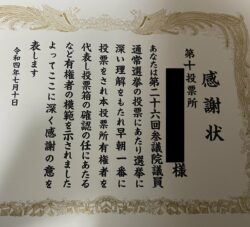 感謝状
第十投票所
様
あなたは第二十六回参議院議員
通常選挙の投票にあたり選挙に
深い理解をもたれ早朝一番に
投票をされ本投票所有権者を
代表し投票箱の確認の任にあたる
など有権者の模範を示されました
よってここに深く感謝の意を
表します
令和四年七月十日